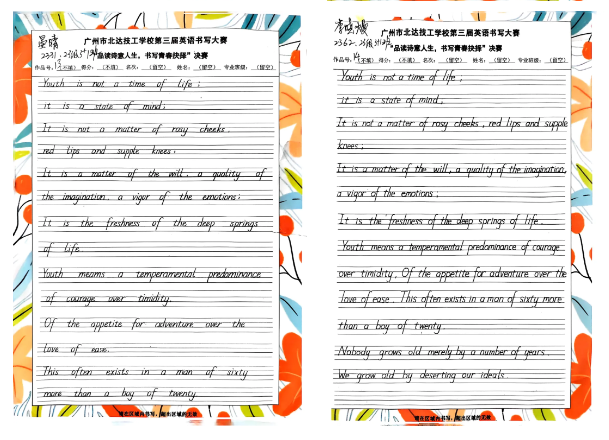 广州市北达技工学校第三届英语书写大赛
"品读诗意人生，书写青春抉择"决赛
作品号：（不填） 得分：（不填） 名次：（留空） 姓名：（留空） 专业班级：（留空）
Youth is not a time of life;
it is a state of mind;
It is not a matter of rosy cheeks,
red lips and supple knees;
It is a matter of the will, a quality of
the imagination, a vigor of the emotions;
It is the freshness of the deep springs
of life.
Youth means a temperamental predominance
of courage over timidity.
Of the appetite for adventure over the
love of ease.
This often exists in a man of sixty
more than a boy of twenty.
广州市北达技工学校第三届英语书写大赛
"品读诗意人生，书写青春抉择"决赛
作品号：（不填） 得分：（不填） 名次：（留空） 姓名：（留空） 专业班级：（留空）
Youth is not a time of life;
it is a state of mind;
It is not a matter of rosy cheeks, red lips and supple
knees;
It is a matter of the will, a quality of the imagination,
a vigor of the emotions;
It is the freshness of the deep springs of life.
Youth means a temperamental predominance of courage
over timidity. Of the appetite for adventure over the
love of ease. This often exists in a man of sixty more
than a boy of twenty.
Nobody grows old merely by a number of years.
We grow old by deserting our ideals.